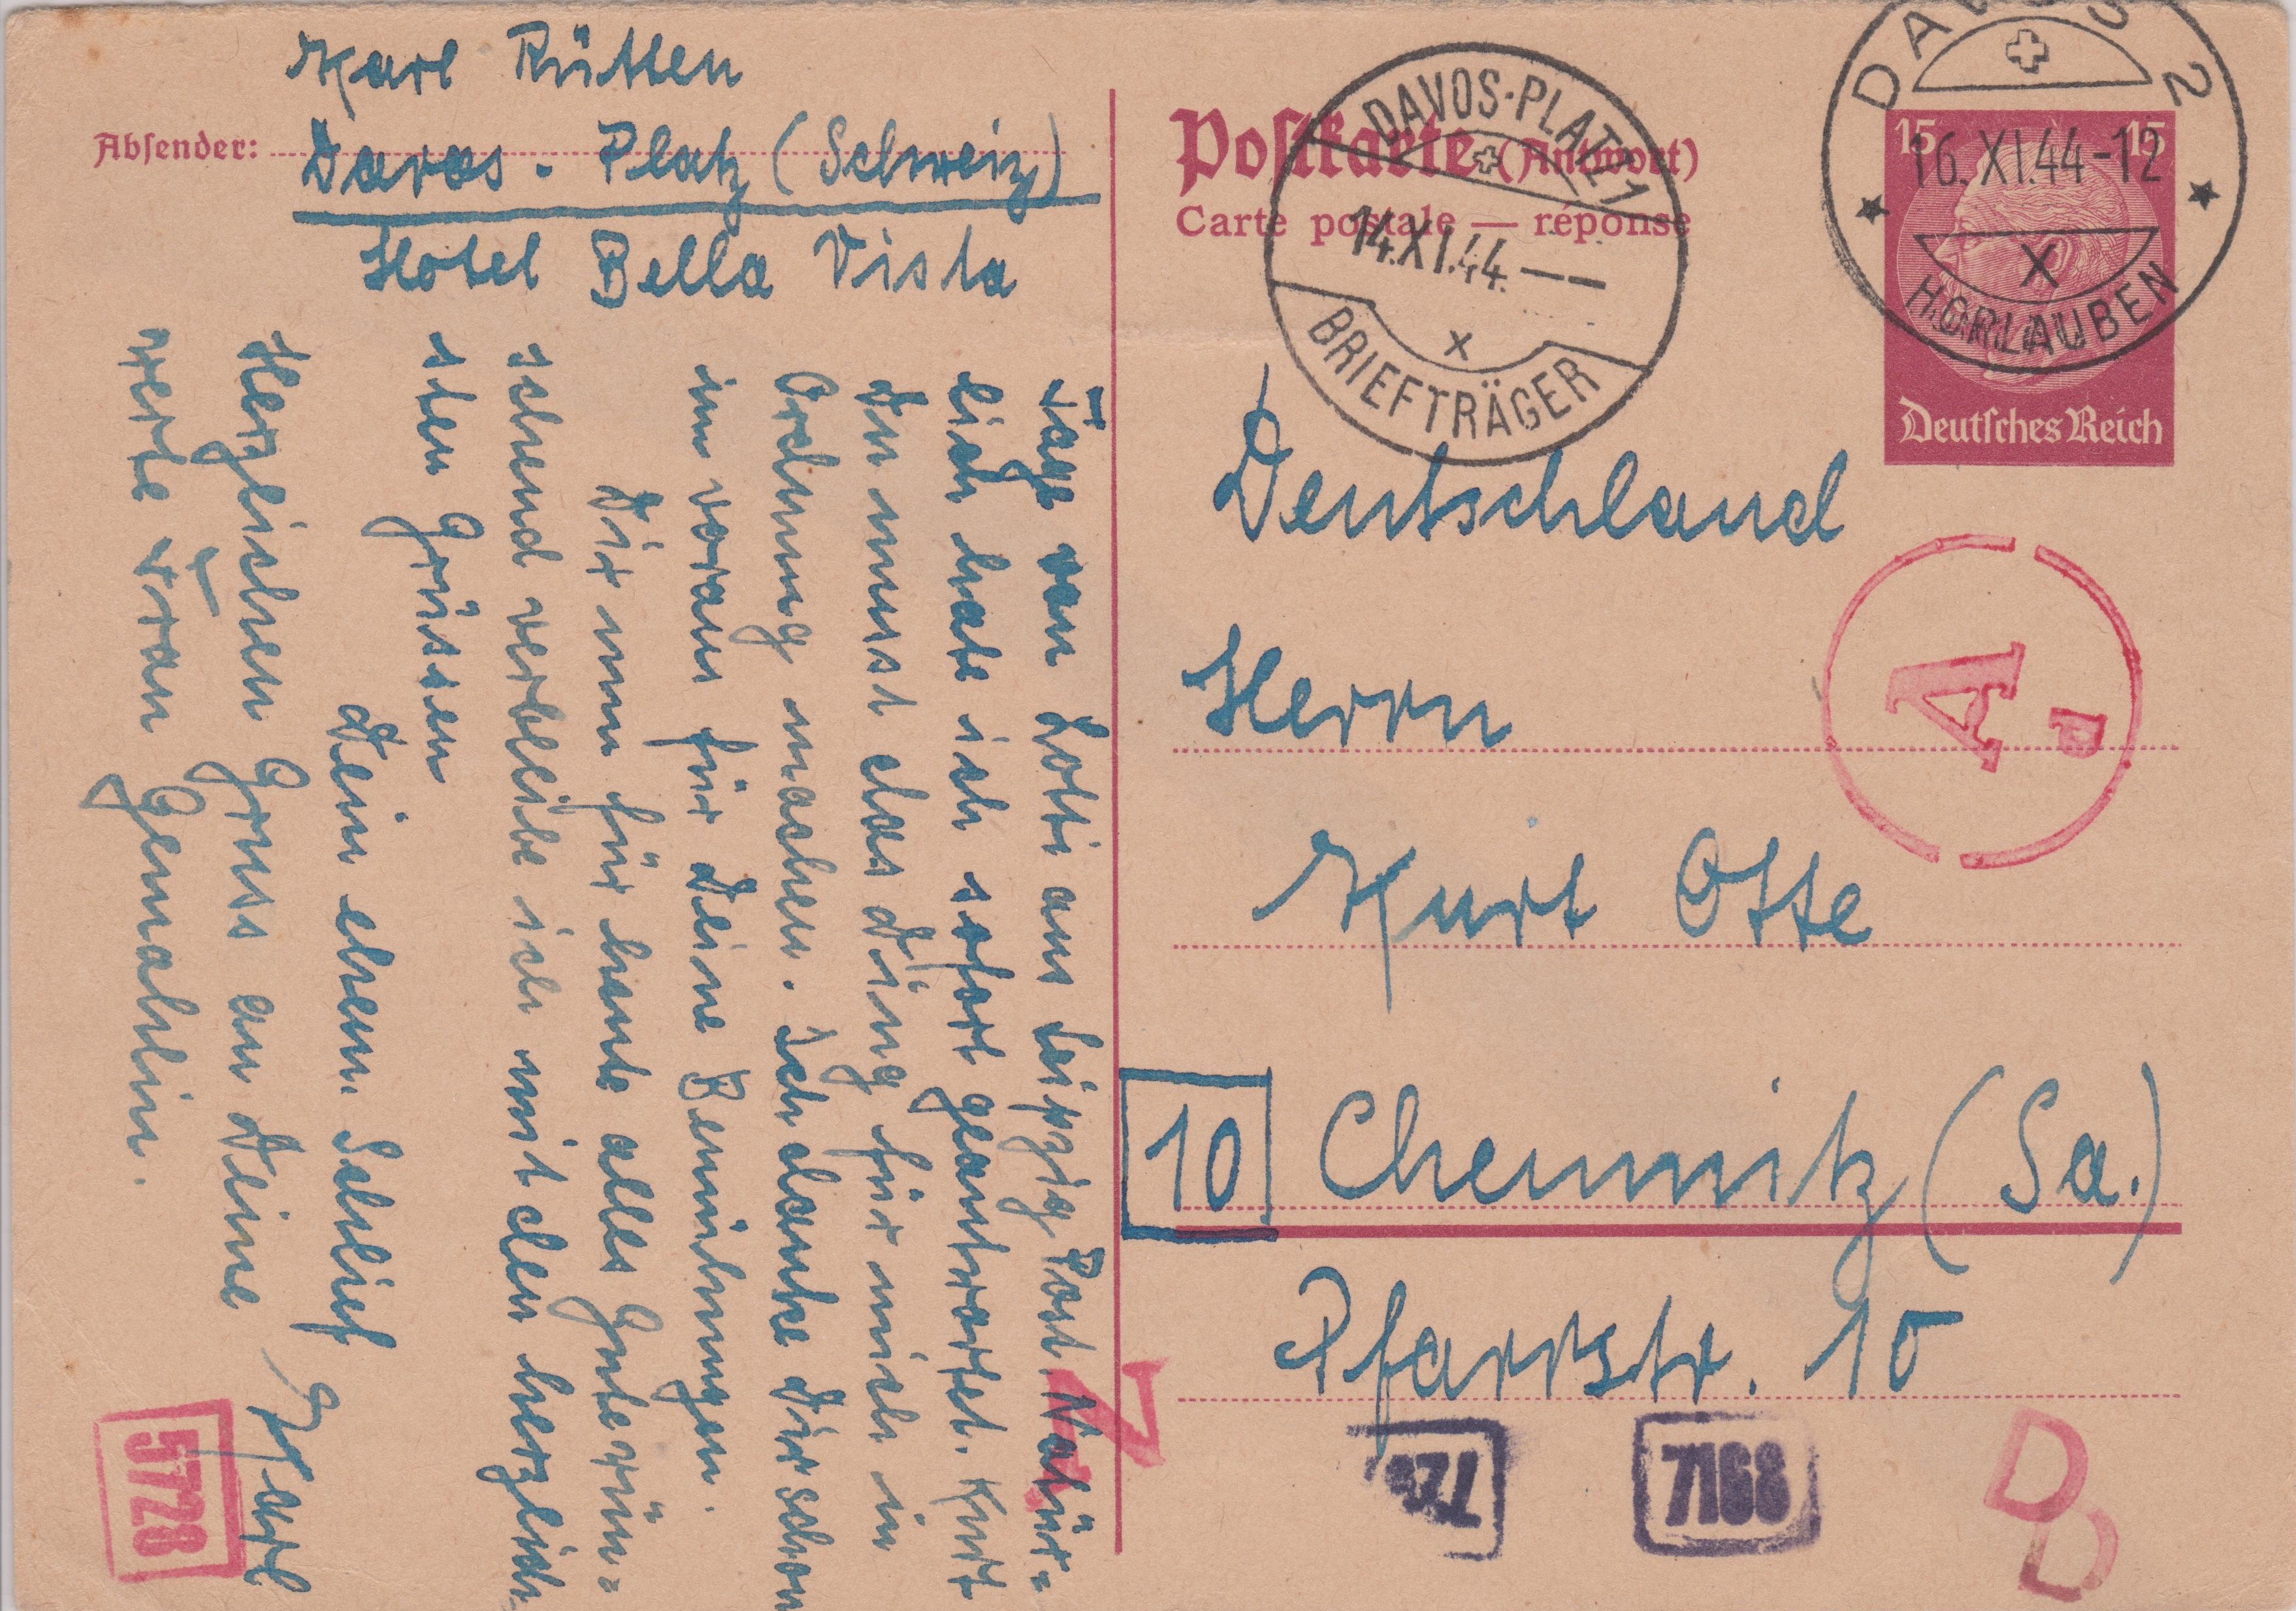 Karl Rütten
Absender: Davos - Platz (Schweiz)
Hotel Bella Vista
Tage von Lotti aus Leipzig Post. Natür=
lich habe ich sofort geantwortet. Kurt
Du musst das Ding für mich in
Ordnung machen. Ich danke Dir schon
im voraus für Deine Bemühungen.
Dir nun für heute alles Gute wün=
schend verbleibe ich mit den herzlich
sten Grüssen
Dein ehem. Schlief
Karl
Herzlichen Gruss an Deine
werte Frau Gemahlin.
Postkarte (Antwort)
Carte postale — réponse
DAVOS-PLATZ 1
14.XI.44.--
X
BRIEFTRÄGER
DAVOS 2
16.XI.44-12
X
HORLAUBEN
15 15
Deutsches Reich
Deutschland
Herrn
Kurt Otte
10 Chemnitz (Sa.)
Pfarrstr. 10
A
d
5728
7168
D
D